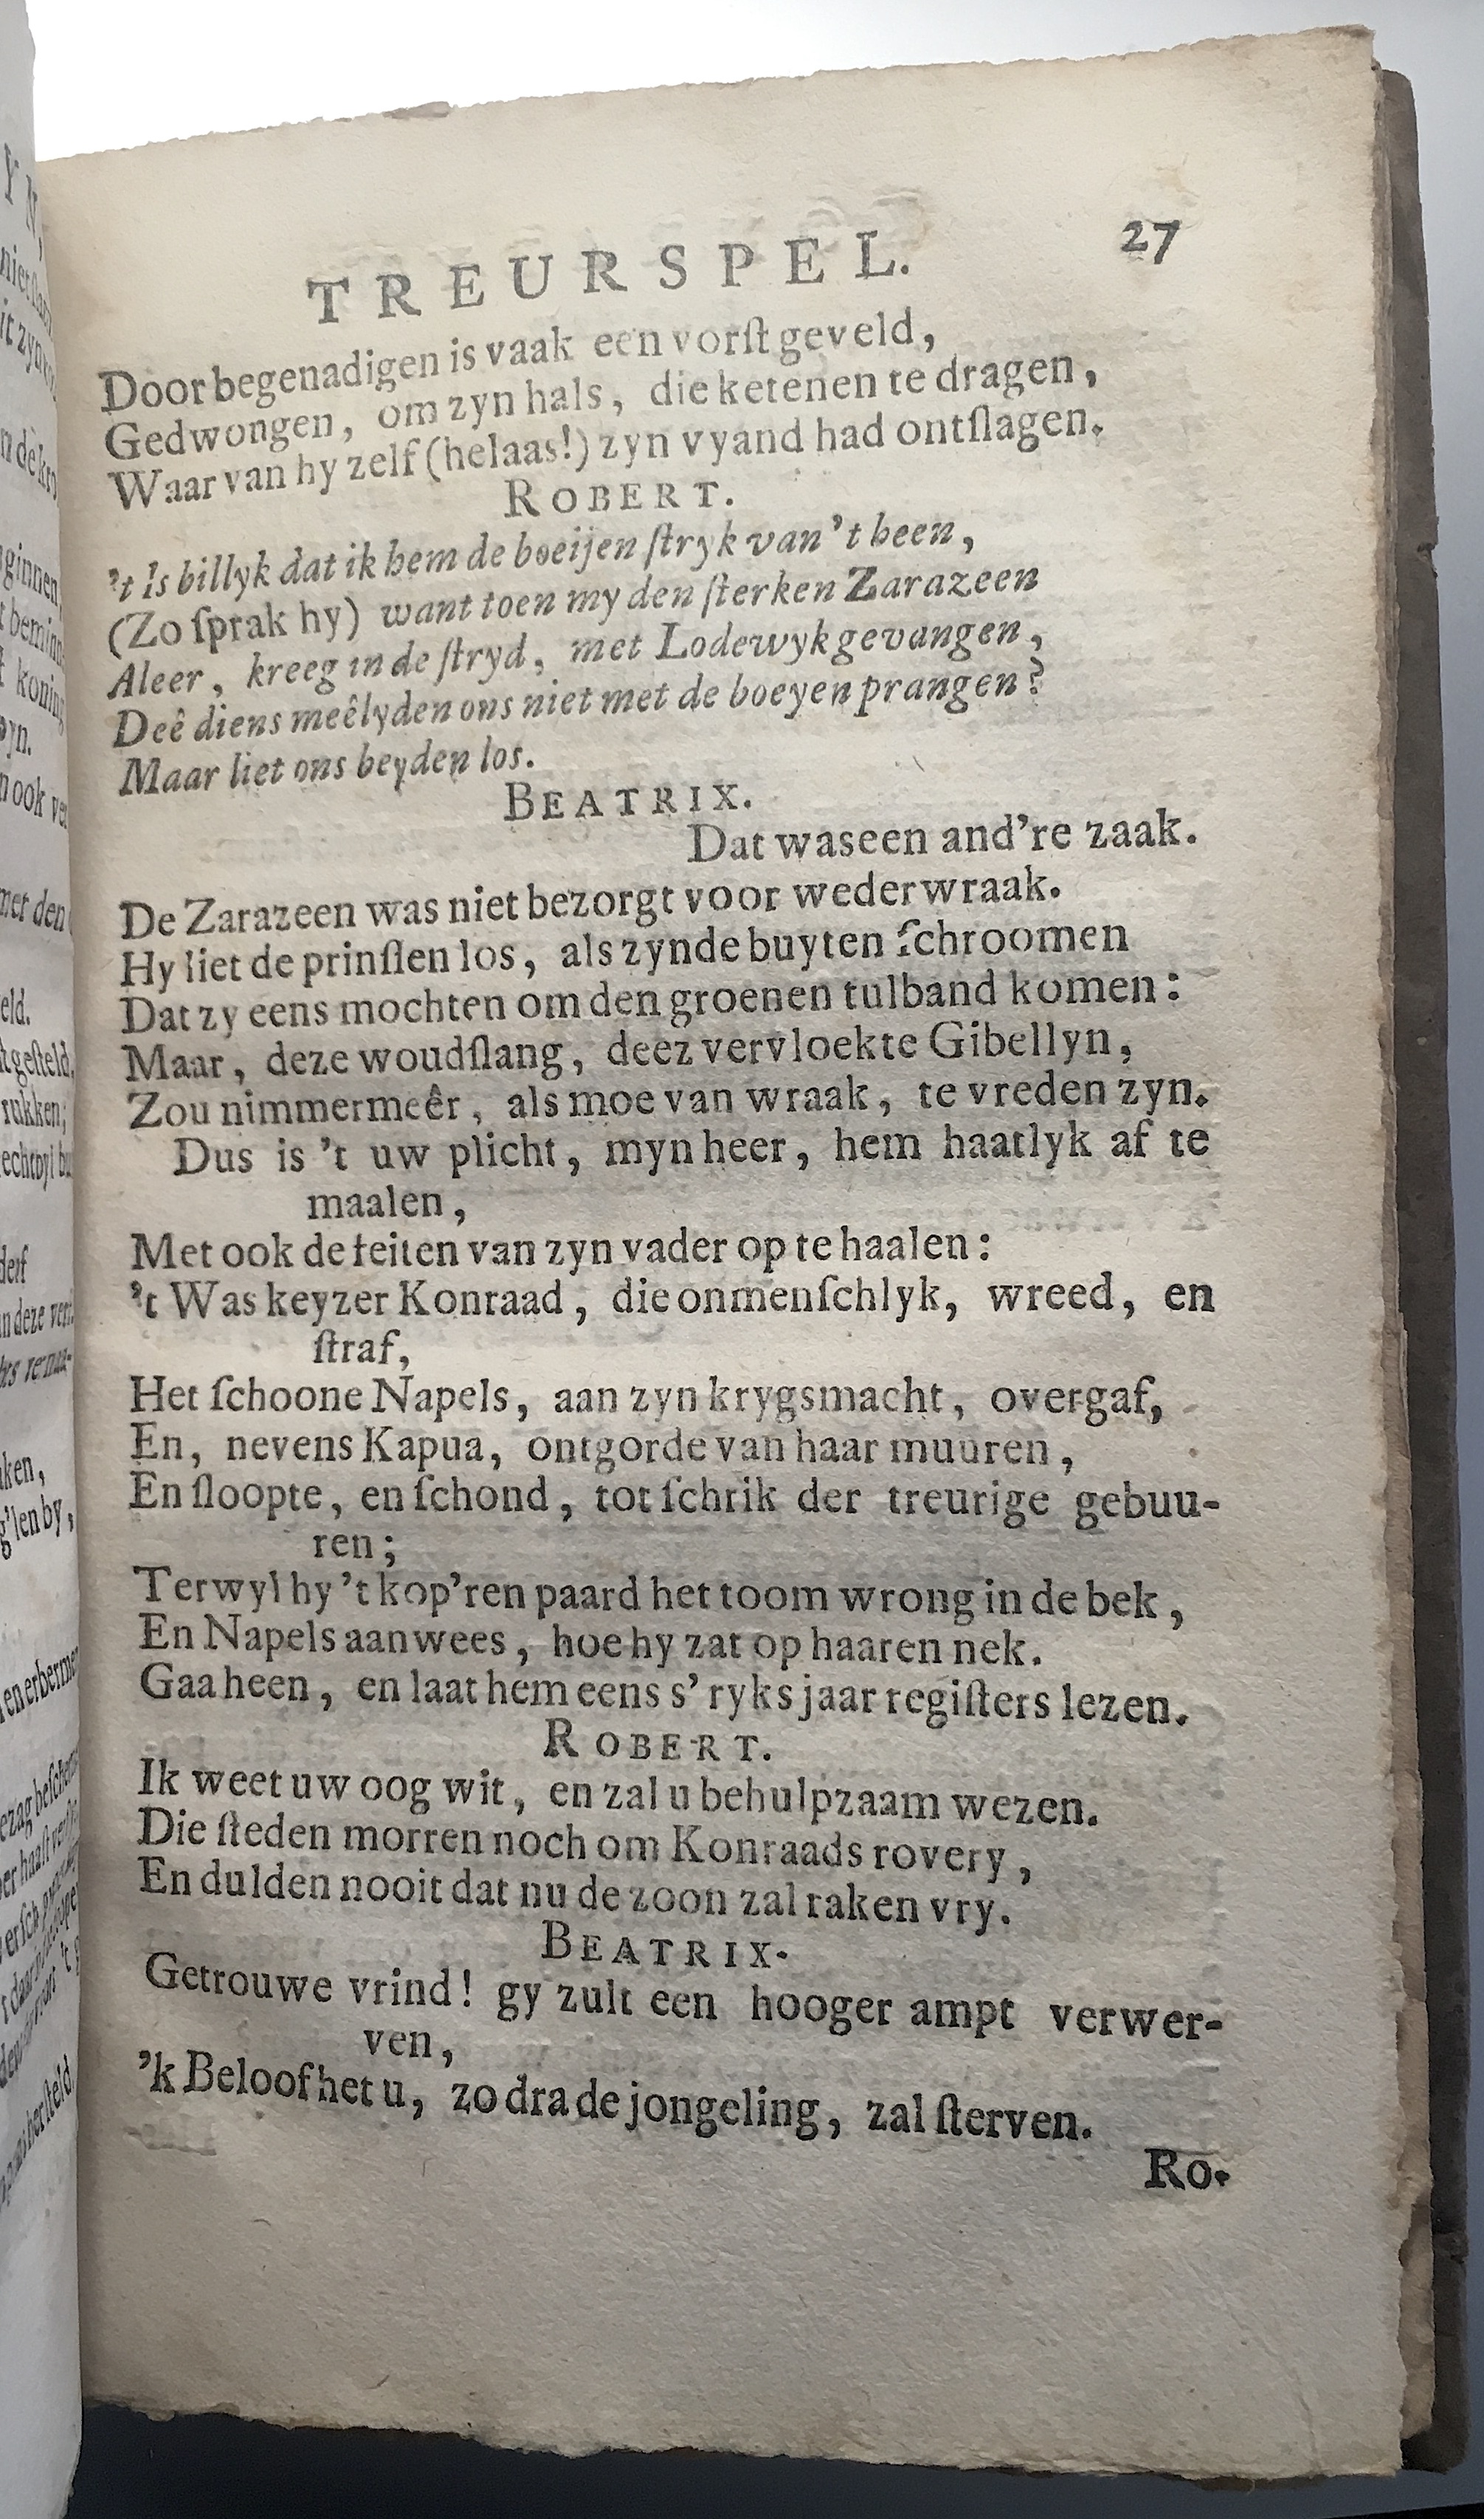 TREURSPEL. 27
Door begenadigen is vaak een vorſt geveld,
Gedwongen, om zyn hals, die ketenen te dragen,
Waar van hy zelf (helaas!) zyn vyand had ontſlagen.
ROBERT.
't Is billyk dat ik hem de boeijen ſtryk van 't been,
(Zo ſprak hy) want toen my den ſterken Zarazeen
Aleer, kreeg in de ſtryd, met Lodewyk gevangen,
Deê diens meêlyden ons niet met de boeyen prangen?
Maar liet ons beyden los.
BEATRIX.
Dat was een and're zaak.
De Zarazeen was niet bezorgt voor wederwraak.
Hy liet de prinſſen los, als zynde buyten ſchroomen
Dat zy eens mochten om den groenen tulband komen:
Maar, deze woudſlang, deez vervloekte Gibellyn,
Zou nimmermeêr, als moe van wraak, te vreden zyn.
Dus is 't uw plicht, myn heer, hem haatlyk af te
maalen,
Met ook de feiten van zyn vader op te haalen:
't Was keyzer Konraad, die onmenſchlyk, wreed, en
ſtraf,
Het ſchoone Napels, aan zyn krygsmacht, overgaf,
En, nevens Kapua, ontgorde van haar muuren,
En ſloopte, en ſchond, tot ſchrik der treurige gebuu-
ren;
Terwyl hy 't kop'ren paard het toom wrong in de bek,
En Napels aanwees, hoe hy zat op haaren nek.
Gaa heen, en laat hem eens s' ryks jaar regiſters lezen.
ROBERT.
Ik weet uw oog wit, en zal u behulpzaam wezen.
Die ſteden morren noch om Konraads rovery,
En dulden nooit dat nu de zoon zal raken vry.
BEATRIX.
Getrouwe vrind! gy zult een hooger ampt verwer-
ven,
'k Beloof het u, zo dra de jongeling, zal ſterven.
Ro.